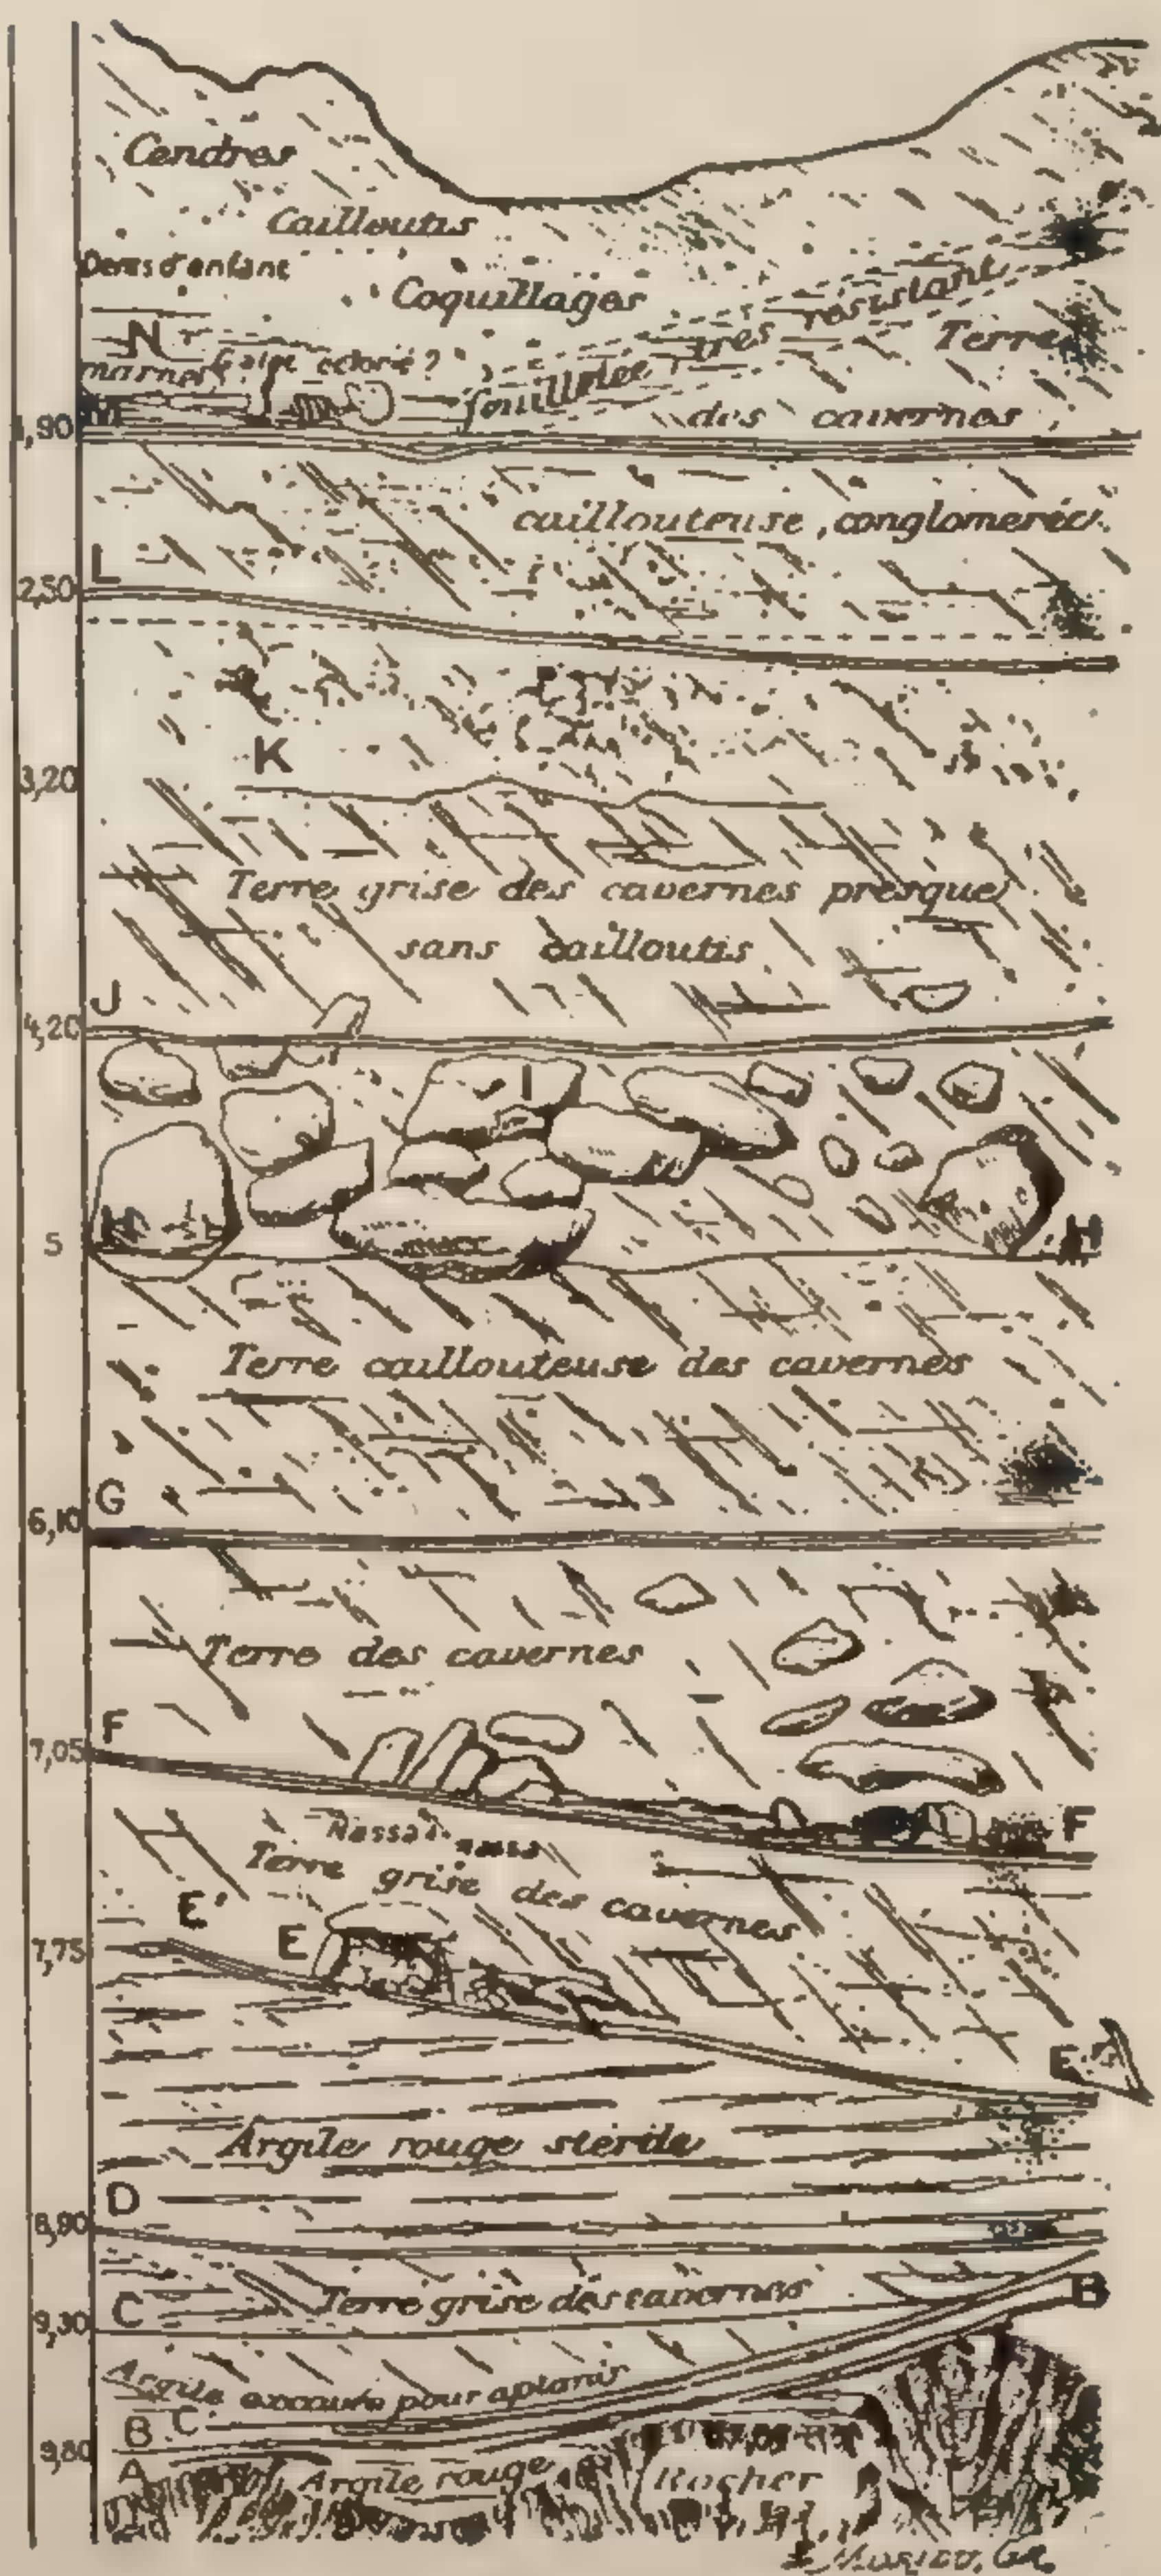 Cendres
Cailloutis
Dents d'enfant
Coquillages
très résistant
N
Terre
marnes
feuilletée
M
1,90
des cavernes
caillouteuse, conglomerée
L
2,50
K
3,20
Terre grise des cavernes presque
sans cailloutis
J
4,20
I
5
H
Terre caillouteuse des cavernes
G
6,10
Terre des cavernes
F
7,05
F
Nassa
Terre grise des cavernes
E'
E
7,75
E
Argile rouge stérile
D
8,90
Terre grise des cavernes
B
C
9,30
Argile pour aplanir
B C
9,80
A Argile rouge Rocher